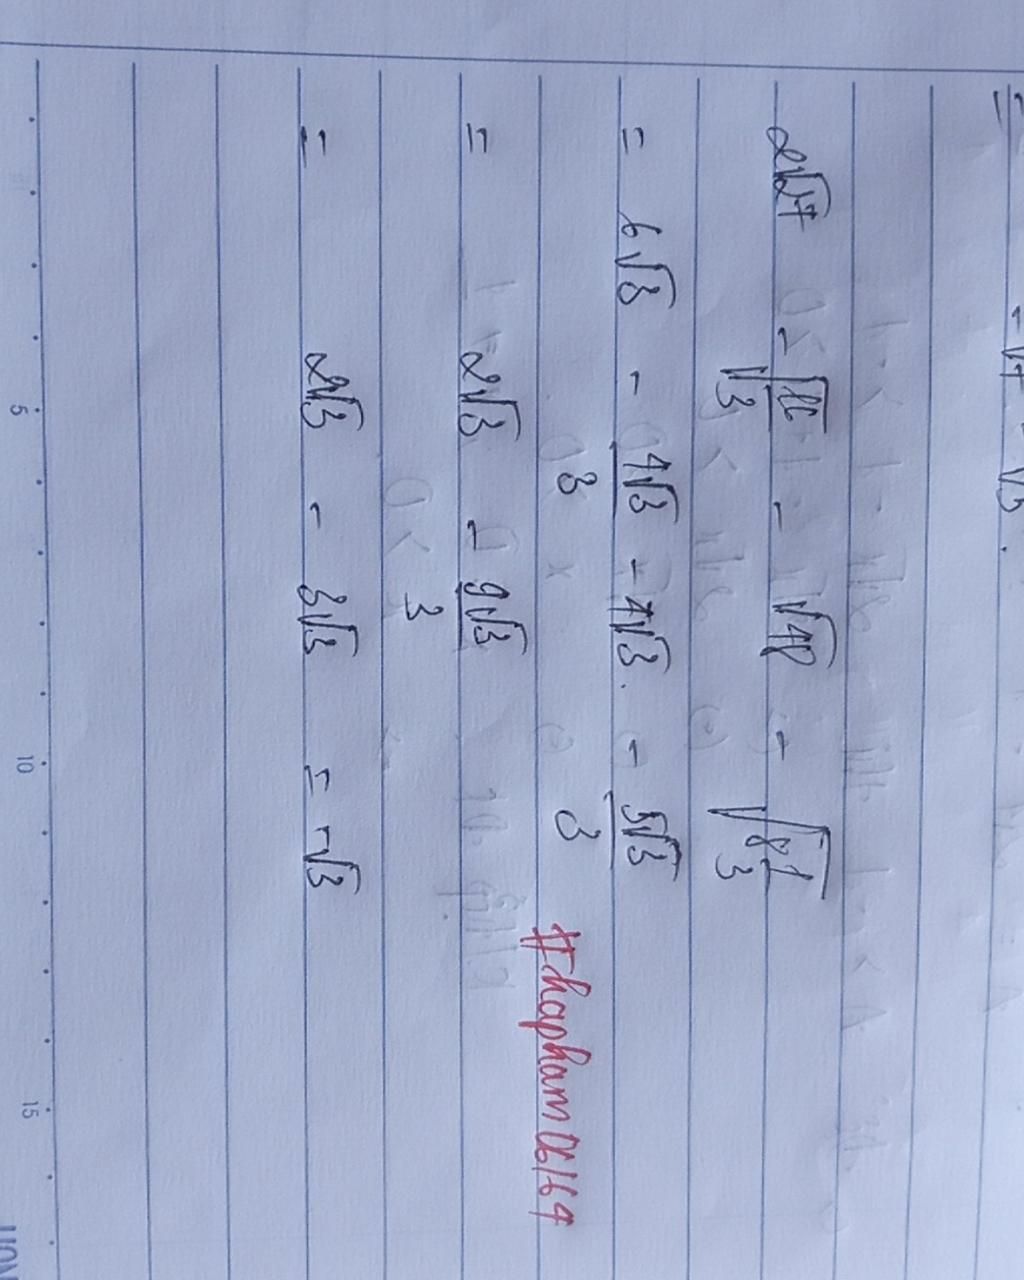 = -√7 - √3.
2√27 - √(16/3) - √48 - √(8 1/3)
= 6√3 - 4√3/3 - 4√3. - 5√3/3
= 2√3 - 9√3/3
= 2√3 - 3√3 = -√3
#hapham06164
5 10 15